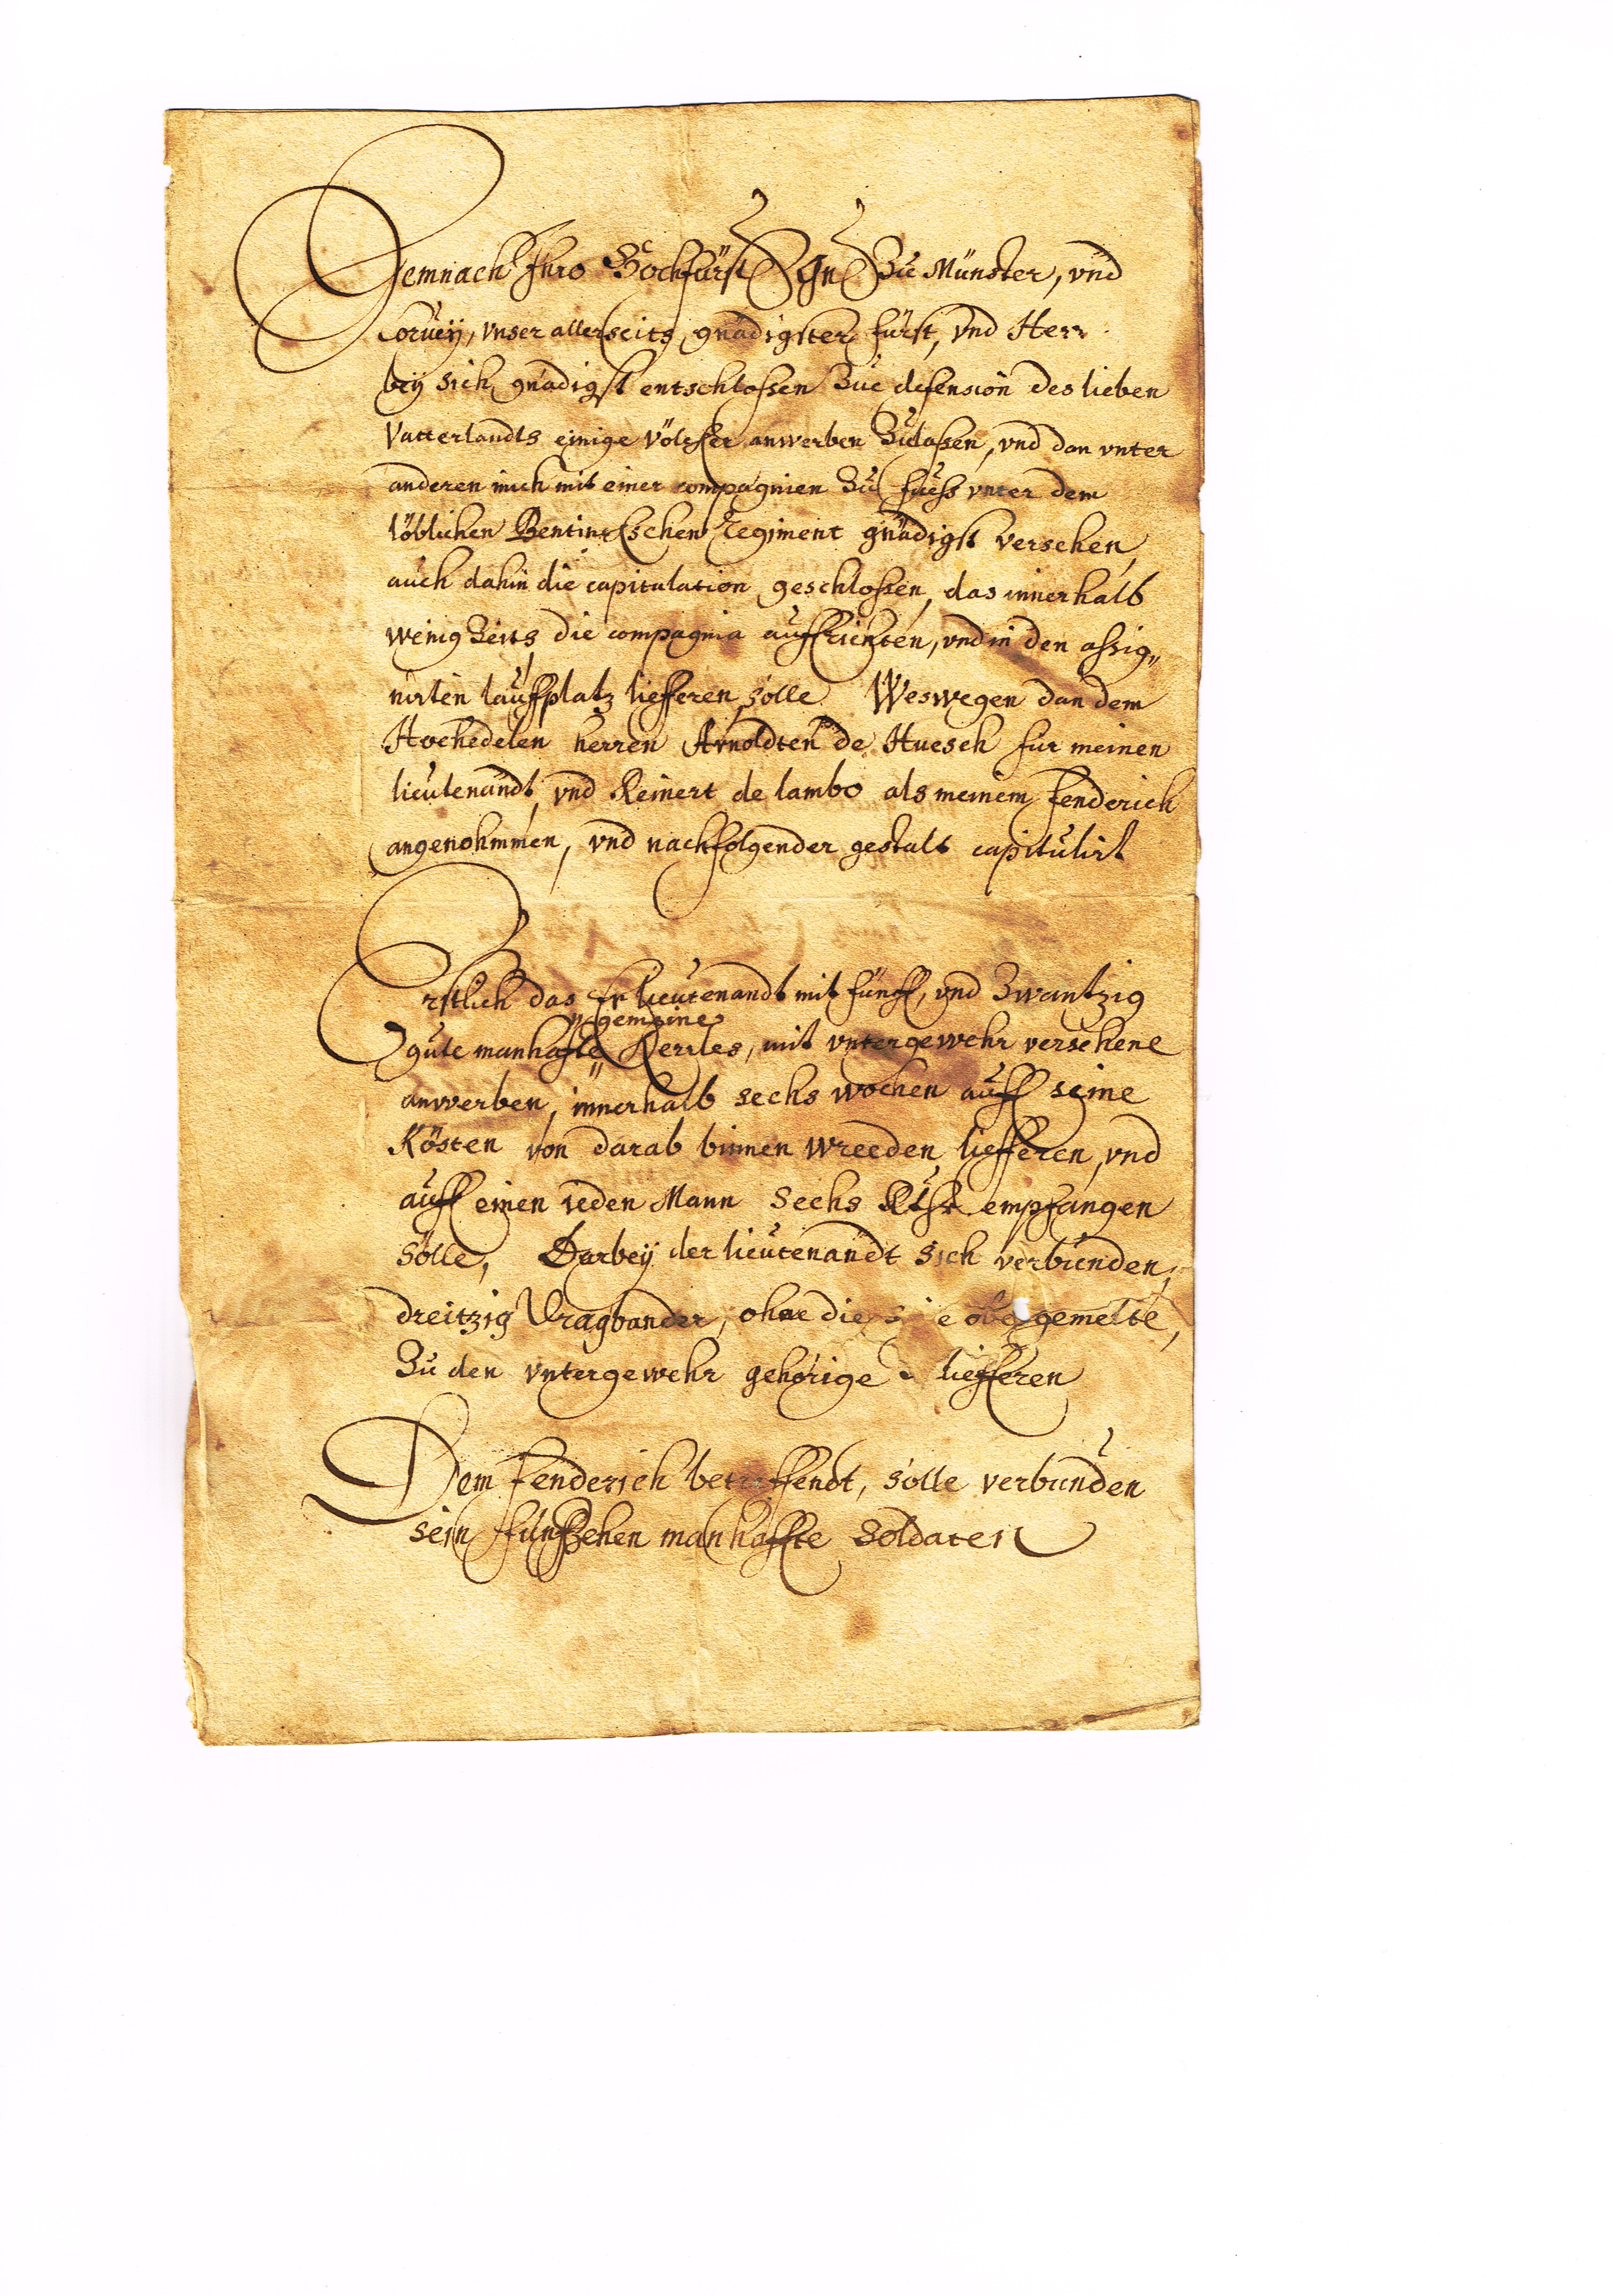 Demnach Ihro Hochfürst Gn Zu Münster, vnd
Corveÿ, vnser allerseits gnädigster fürst, vnd Herr
beÿ sich gnädigst entschloßen Zue defension des lieben
Vatterlandts einige völcker anwerben Zulaßen, vnd dan vnter
anderen mich mit einer compagnien Zu fueß vnter dem
löblichen Bentinckschen Regiment gnädigst versehen,
auch dahin die capitulation geschloßen, das innerhalb
wenig Zeits die compagnia auffrichten, vnd in den aßig„
nirten lauffplatz liefferen solle Weswegen dan dem
Hochedelen herren Arnoldten de Huesch fur meinen
lieutenandt, vnd Reinert de lambo als meinem fenderich
angenohmmen, vnd nachfolgender gestalt capitulirt
Erstlich das Hr lieutenandt mit fünff, vnd Zwantzig
gemeine
gute manhafte Kerrles, mit vntergewehr versehene
anwerben, innerhalb sechs wochen auff seine
Kösten von darab binnen wreeden liefferen, vnd
auff einen ieden Mann sechs Rthr empfangen
solle, Darbeÿ der lieutenandt sich verbunden,
dreitzig Dragbander, ohne die obgemelte,
Zu den vntergewehr gehörige liefferen
Dem fenderich betreffendt, solle verbunden
sein fünffzehen manhaffte Soldaten